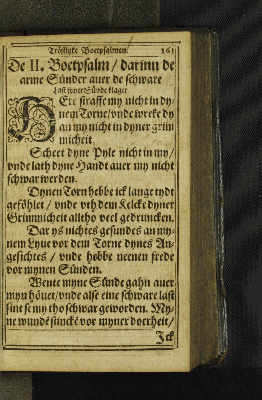 Tröstlyke Boetpsalmen. 361
De II. Boetpsalm / darinn de
arme Sünder auer de schware
Last syner Sünde klaget.
HEre straffe my nicht in dy-
nem Torne / vnde wreke dy
an my nicht in dyner grim
micheit.
Scheet dyne Pyle nicht in my /
vnde lath dyne Handt auer my nicht
schwar werden.
Dynen Torn hebbe ick lange tydt
geföhlet / vnde vth dem Kelcke dyner
Grimmicheit altho veel gedruncken.
Dar ys nichtes gesundes an my-
nem Lyue vor dem Torne dynes An-
gesichtes / vnde hebbe neenen frede
vor mynen Sünden.
Wente myne Sünde gahn auer
myn höuet / vnde alse eine schware last
sint se my tho schwar geworden. My-
ne wundē stinckē vor myner dorheit /
Ick